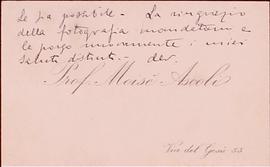 le sia possibile. - La ringrazio
della fotografia mandatami e
le porgo nuovamente i miei
saluti distinti - dev.
Prof. Moisè Ascoli
Via del Gesù 55